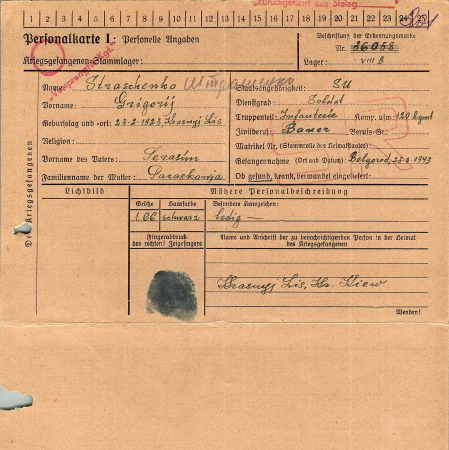 Zurückgeführt aus Stalag
1 2 3 4 5 6 7 8 9 10 11 12 13 14 15 16 17 18 19 20 21 22 23 24 25
Personalkarte I: Personelle Angaben
Kriegsgefangenen-Stammlager:
Beschriftung der Erkennungsmarke
Nr. 36058
Lager: VIII B
Name: Straschenko
Vorname: Grigorij
Geburtstag und -ort: 23.2.1923, Krasnyj Lis
Religion:
Vorname des Vaters: Gerasim
Familienname der Mutter:
Staatsangehörigkeit: SU
Dienstgrad: Soldat
Truppenteil: Infanterie Komp. usw.:
Zivilberuf: Bauer Berufs-Gr.:
Matrikel Nr. (Stammrolle des Heimatstaates):
Gefangennahme (Ort und Datum): Belgorod, 1943
Ob gesund, krank, verwundet eingeliefert:
Des Kriegsgefangenen
Lichtbild
Nähere Personalbeschreibung
Größe Haarfarbe Besondere Kennzeichen:
1.66 schwarz ledig —
Fingerabdruck
des rechten! Zeigefingers
Name und Anschrift der zu benachrichtigenden Person in der Heimat
des Kriegsgefangenen
Krasnyj Lis, Kr. Kiew
Wenden!